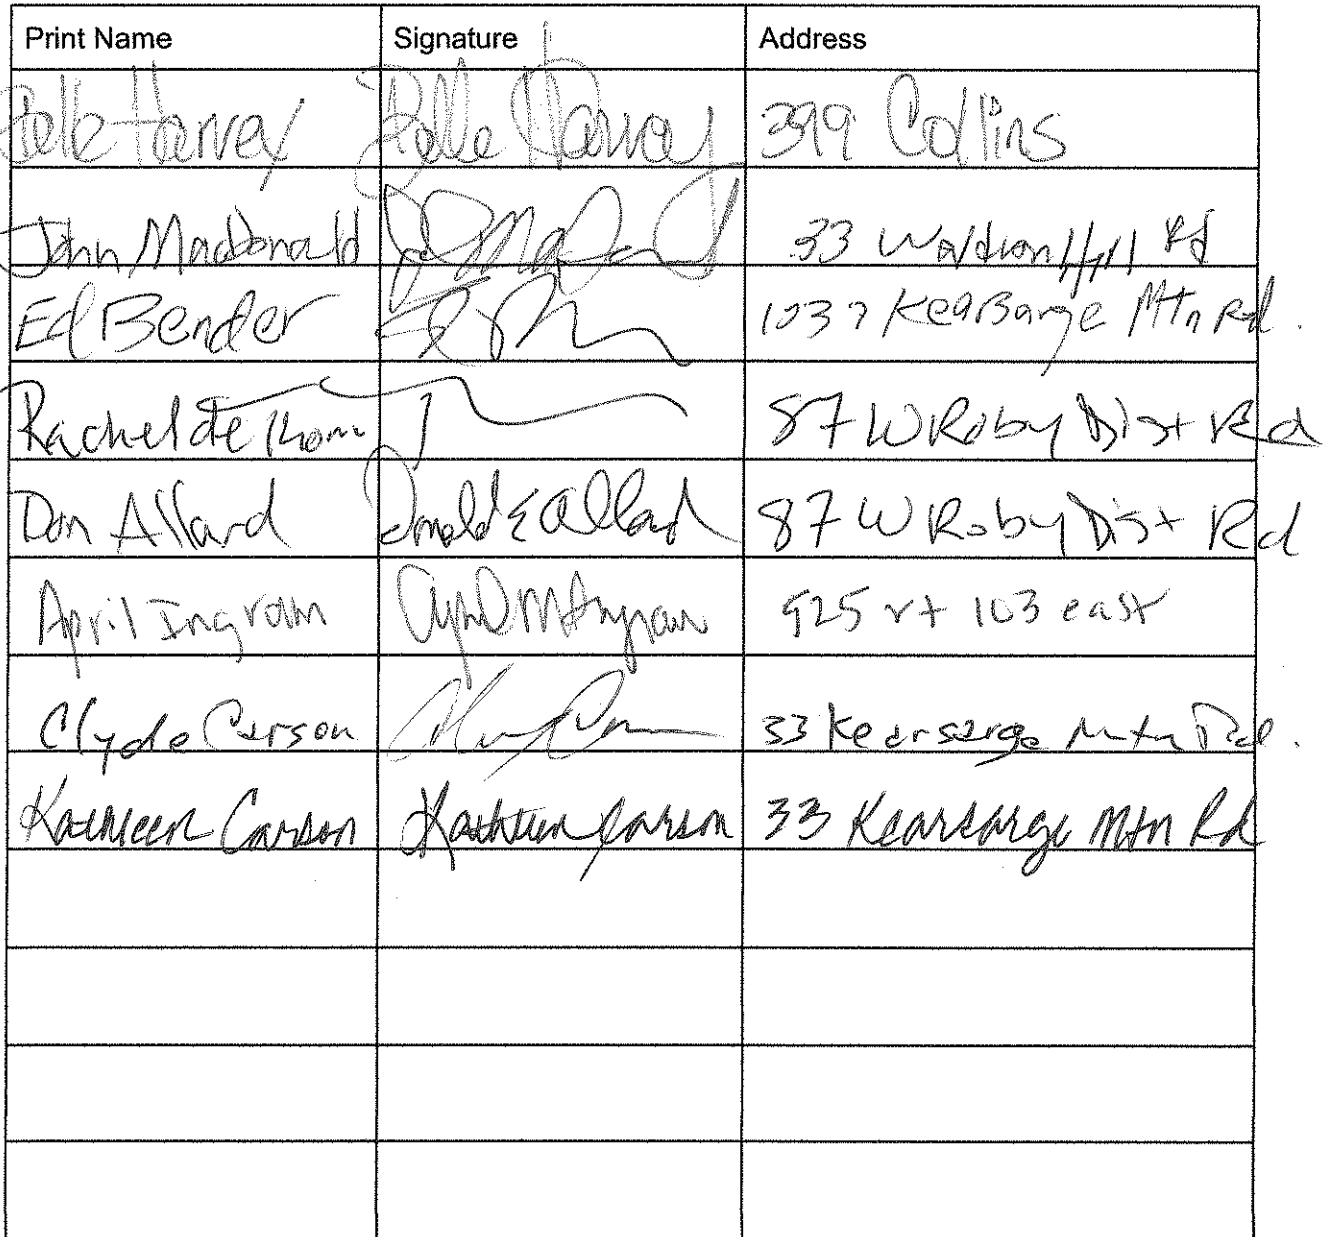 Print Name Signature Address
Belle Harvey Belle Harvey 399 Collins
John MacDonald 33 Waldron Hill Rd
Ed Bender 1037 KearSarge Mtn Rd.
Rachel de 87 W Roby Dist Rd
Don Allard Donald E Allard 87 W Roby Dist Rd
April Ingram April M Ingram 925 rt 103 east
Clyde Carson 33 Kearsarge Mtn Rd.
Kathleen Carson Kathleen Carson 33 Kearsarge Mtn Rd